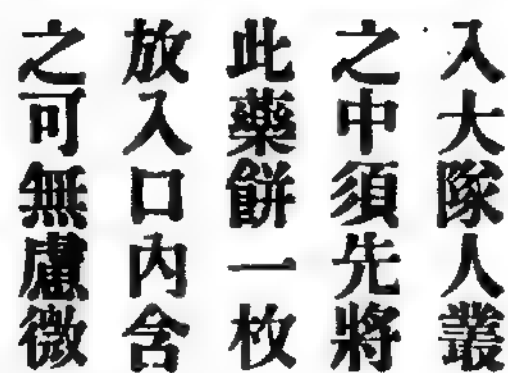 入大隊人叢
之中須先將
此藥餅一枚
放入口內含
之可無慮微